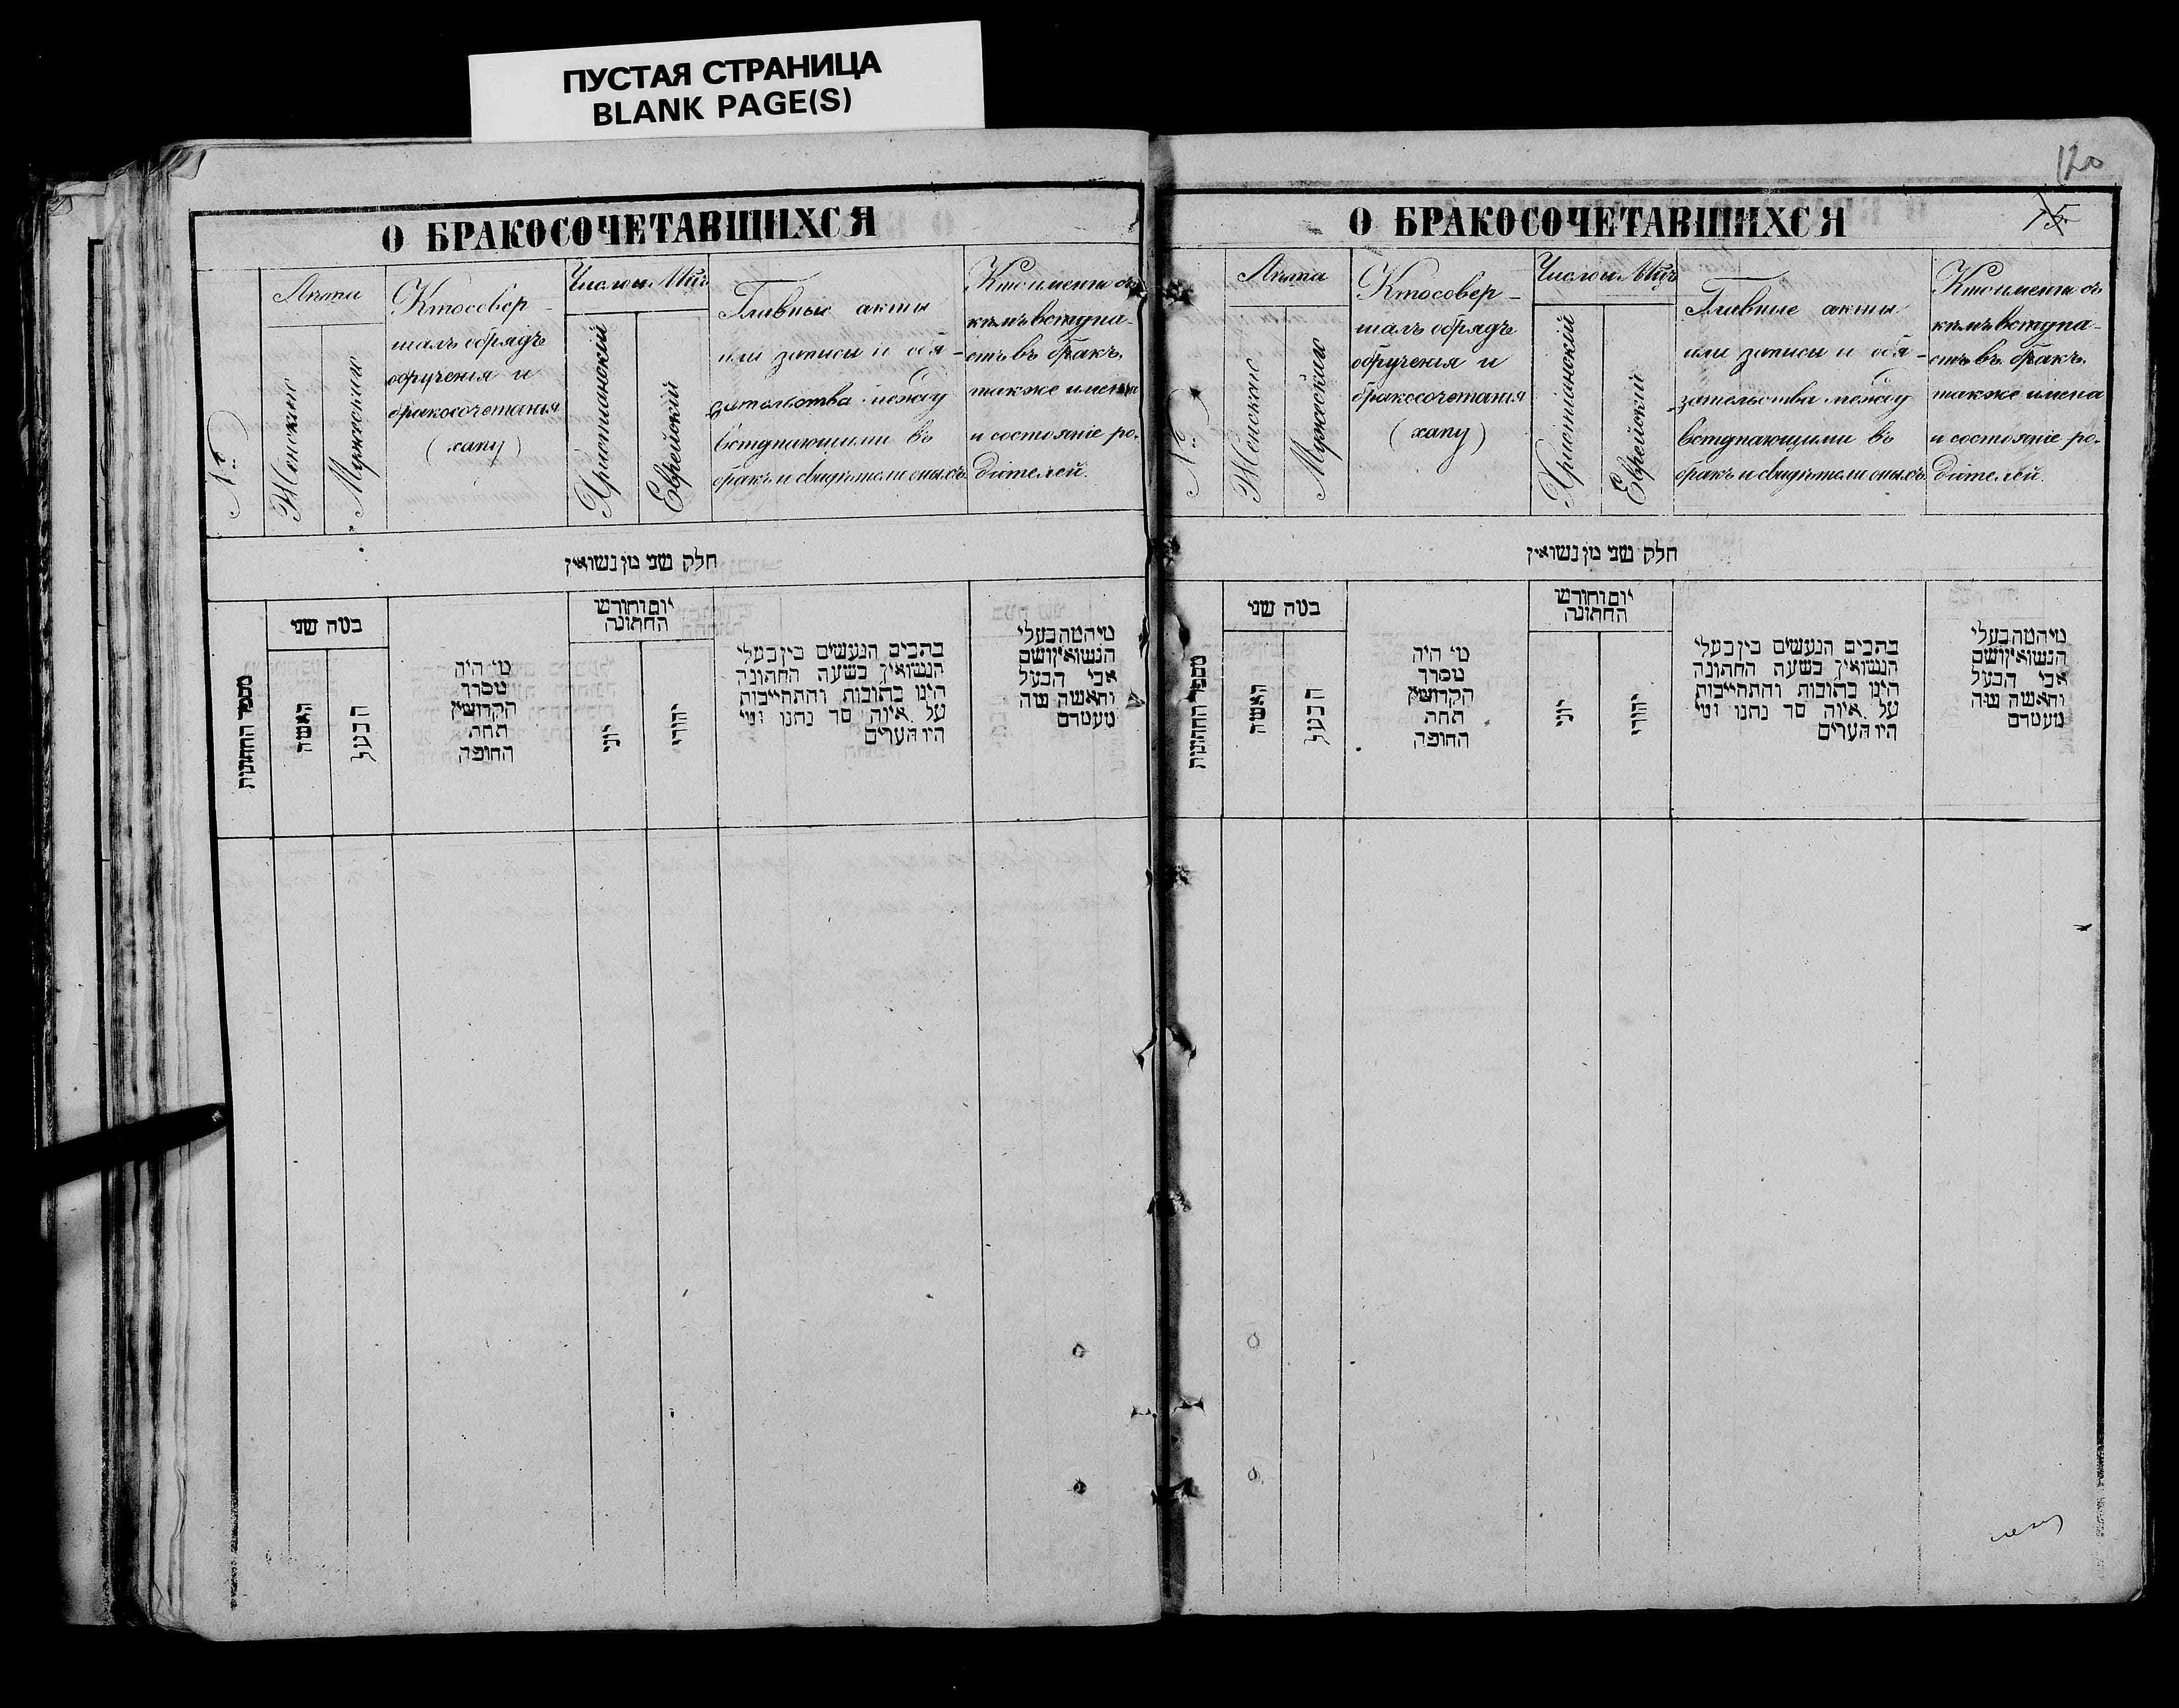 ПУСТАЯ СТРАНИЦА
BLANK PAGE(S)
О БРАКОСОЧЕТАВШИХСЯ
№
Лѣта
Женскаго
Мужескаго
Кто совер-
шалъ обрядъ
обрученія и
бракосочетанія
(хапу)
Число и Мѣц
Христіанскій
Еврейскій
Главные акты
или записи и обя-
зательства между
вступающими въ
бракъ и свидѣтели оныхъ
Кто именно съ
кѣмъ вступа-
етъ въ бракъ
также имена
и состояніе ро-
дителей.
חלק שני מן נשואין
מספר החתונות
במה שני
האשה
הבעל
מי היה
מסדר
הקדושין
תחת
החופה
יום וחודש
החתונה
יוני
יהודי
בתבים הנעשים בין בעלי
הנשואין בשעת החתונה
הינו כתובות והתחייבות
על איזה סך נתנו ומי
היו העדים
מי המה בעלי
הנשואין ושם
אבי הבעל
והאשה ומה
מעמדם
120
15
О БРАКОСОЧЕТАВШИХСЯ
№
Лѣта
Женскаго
Мужескаго
Кто совер-
шалъ обрядъ
обрученія и
бракосочетанія
(хапу)
Число и Мѣц
Христіанскій
Еврейскій
Главные акты
или записи и обя-
зательства между
вступающими въ
бракъ и свидѣтели оныхъ
Кто именно съ
кѣмъ вступа-
етъ въ бракъ
также имена
и состояніе ро-
дителей.
חלק שני מן נשואין
מספר החתונות
במה שני
האשה
הבעל
מי היה
מסדר
הקדושין
תחת
החופה
יום וחודש
החתונה
יוני
יהודי
בתבים הנעשים בין בעלי
הנשואין בשעת החתונה
הינו כתובות והתחייבות
על איזה סך נתנו ומי
היו העדים
מי המה בעלי
הנשואין ושם
אבי הבעל
והאשה ומה
מעמדם